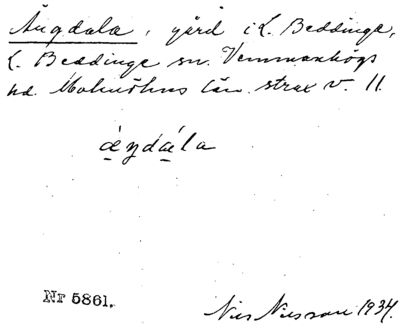 Ängdala, gård i L. Beddinge,
L. Beddinge sn. Vemmenhögs
hd. Malmöhus län. strax v. 11.
áŋdála
Nr 5861.
Nils Nilsson 1934.